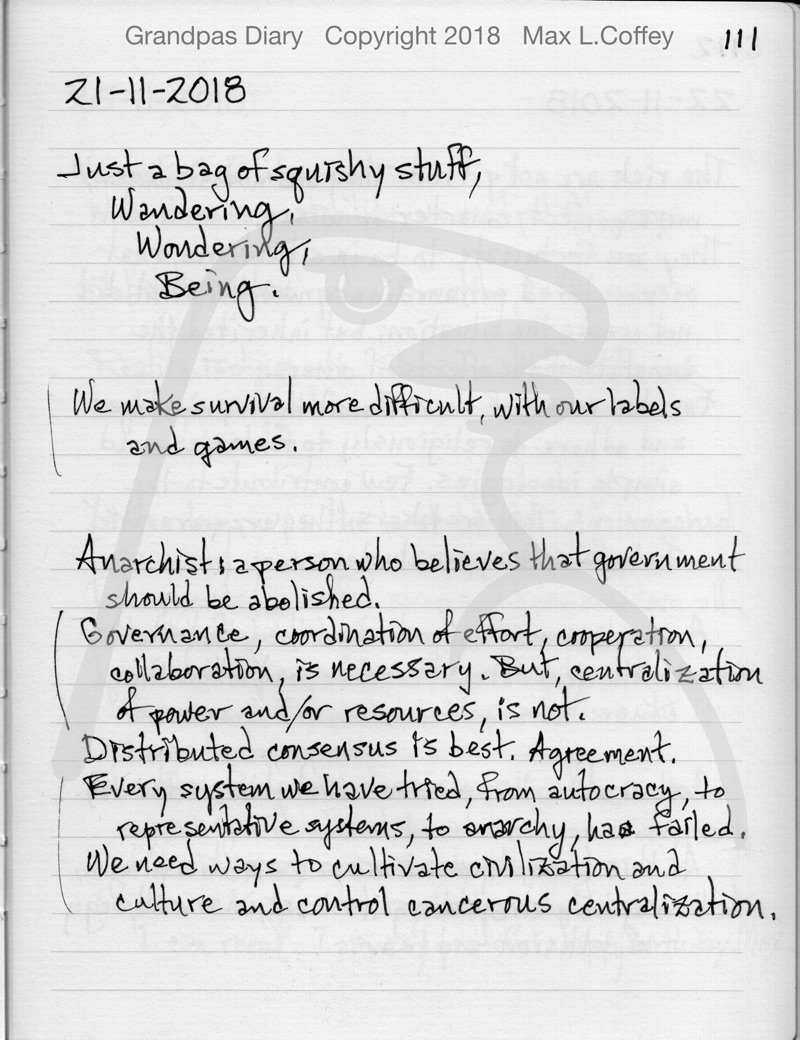 Grandpas Diary Copyright 2018 Max L.Coffey 111
21-11-2018
Just a bag of squishy stuff,
Wandering,
Wondering,
Being.
We make survival more difficult, with our labels
and games.
Anarchist: a person who believes that government
should be abolished.
Governance, coordination of effort, cooperation,
collaboration, is necessary. But, centralization
of power and/or resources, is not.
Distributed consensus is best. Agreement.
Every system we have tried, from autocracy, to
representative systems, to anarchy, has failed.
We need ways to cultivate civilization and
culture and control cancerous centralization.